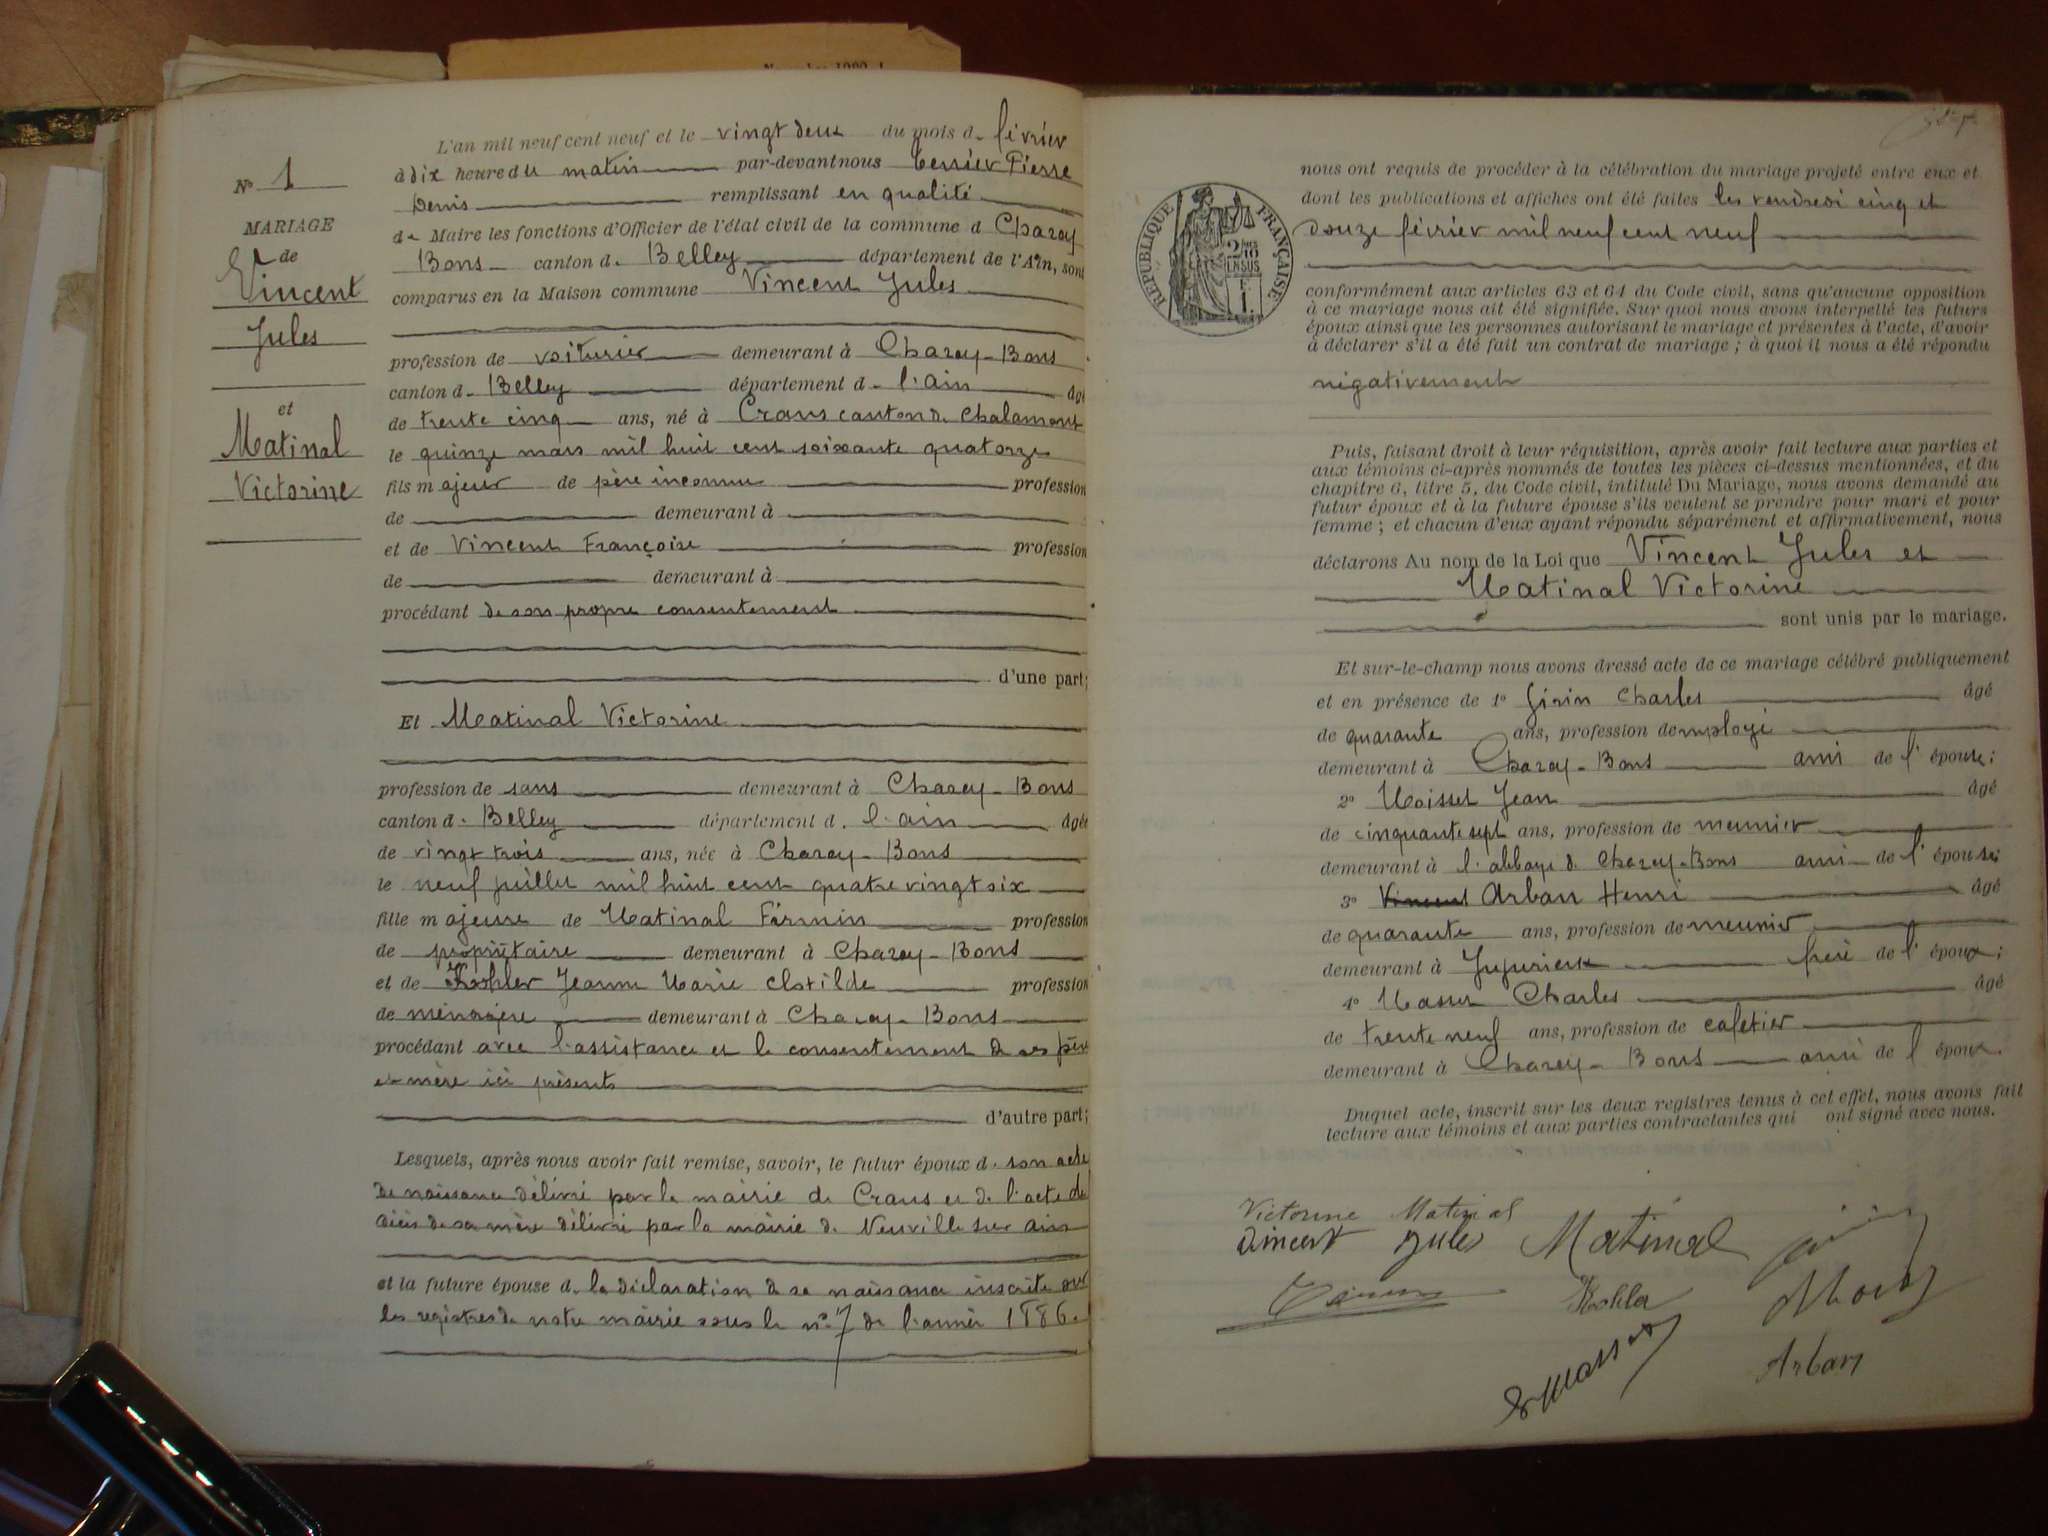 N° 1
MARIAGE
de
Vincent
Jules
et
Matinal
Victorine
L'an mil neuf cent neuf et le vingt deux du mois d. février
à dix heure du matin par-devant nous Terrier Pierre
Denis remplissant en qualité
de Maire les fonctions d'Officier de l'état civil de la commune d Chazey
Bons canton d. Belley département de l'Ain, sont
comparus en la Maison commune Vincent Jules
profession de voiturier demeurant à Chazey-Bons
canton d. Belley département d. l'ain âgé
de trente cinq ans, né à Crans canton de Chalamont
le quinze mars mil huit cent soixante quatorze
fils majeur de père inconnu profession
de demeurant à
et de Vincent Françoise profession
de demeurant à
procédant de son propre consentement
d'une part;
Et Matinal Victorine
profession de sans demeurant à Chazey-Bons
canton d. Belley département d. l'ain âgée
de vingt trois ans, née à Chazey-Bons
le neuf juillet mil huit cent quatre vingt six
fille majeure de Matinal Firmin profession
de propriétaire demeurant à Chazey-Bons
et de Kohler Jeanne Marie Clotilde profession
de ménagère demeurant à Chazey-Bons
procédant avec l'assistance et le consentement de ses père
et mère ici présents
d'autre part;
Lesquels, après nous avoir fait remise, savoir, le futur époux d. son acte
de naissance délivré par la mairie de Crans et de l'acte de
décès de sa mère délivré par la mairie de Neuville sur ain
et la future épouse d. la déclaration de sa naissance inscrite sur
les registres de notre mairie sous le n° 7 de l'année 1886.
RÉPUBLIQUE FRANÇAISE
nous ont requis de procéder à la célébration du mariage projeté entre eux et
dont les publications et affiches ont été faites les vendredi cinq et
douze février mil neuf cent neuf
conformément aux articles 63 et 64 du Code civil, sans qu'aucune opposition
à ce mariage nous ait été signifiée. Sur quoi nous avons interpellé les futurs
époux ainsi que les personnes autorisant le mariage et présentes à l'acte, d'avoir
à déclarer s'il a été fait un contrat de mariage; à quoi il nous a été répondu
négativement
Puis, faisant droit à leur réquisition, après avoir fait lecture aux parties et
aux témoins ci-après nommés de toutes les pièces ci-dessus mentionnées, et du
chapitre 6, titre 5, du Code civil, intitulé Du Mariage, nous avons demandé au
futur époux et à la future épouse s'ils veulent se prendre pour mari et pour
femme; et chacun d'eux ayant répondu séparément et affirmativement, nous
déclarons Au nom de la Loi que Vincent Jules et
Matinal Victorine
sont unis par le mariage.
Et sur-le-champ nous avons dressé acte de ce mariage célébré publiquement
et en présence de 1° Girin Charles âgé
de quarante ans, profession d'employé
demeurant à Chazey-Bons ami de l'épouse;
2° Moissel Jean âgé
de cinquante sept ans, profession de meunier
demeurant à l'abbaye de Chazey-Bons ami de l'épouse;
3° Vincent Arban Henri âgé
de quarante ans, profession de meunier
demeurant à Jujurieux frère de l'époux;
4° Masset Charles âgé
de trente neuf ans, profession de cafetier
demeurant à Chazey-Bons ami de l'époux.
Duquel acte, inscrit sur les deux registres tenus à cet effet, nous avons fait
lecture aux témoins et aux parties contractantes qui ont signé avec nous.
Victorine Matinal
Vincent Jules Matinal
Kohler
Masset
Arban